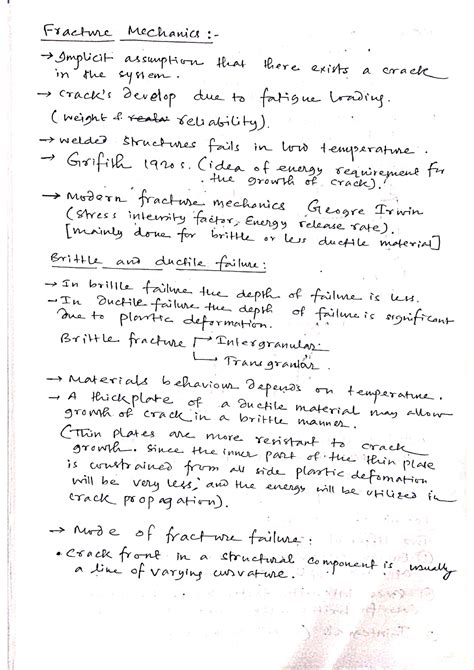 Fracture Mechanics :-
→ Implicit assumption that there exists a crack
in the system.
→ Crack's develop due to fatigue loading.
(weight & reliability).
→ welded structures fails in low temperature.
→ Griffith 1920s. (idea of energy requirement for
the growth of crack).
→ Modern fracture mechanics Geogre Irwin
(stress intensity factor, Energy release rate).
[mainly done for brittle or less ductile material]
Brittle and ductile failure:
→ In brittle failure the depth of failure is less.
- In ductile failure the depth of failure is significant
due to plastic deformation.
Brittle fracture → Intergranular.
→ Transgranular.
→ Materials behaviour depends on temperature.
→ A thick plate of a ductile material may allow
growth of crack in a brittle manner.
(Thin plates are more resistant to crack
growth. Since the inner part of the thin plate
is constrained from all side plastic defomation
will be very less, and the energy will be utilized in
crack propagation).
→ Mode of fracture failure:
• Crack front in a structural component is usually
a line of varying curvature.